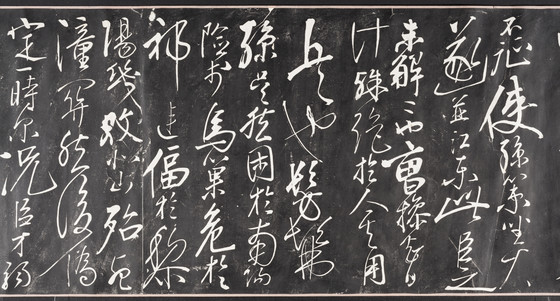 不征使孫策坐大
遂並江東此臣之
未解二也曹操智
計殊絕於人其用
兵也髣髴
孫吳然困於南陽
險於烏巢危於
祁連偪於黎
陽幾敗北山殆死
潼関然後偽
定一時尔況臣才弱